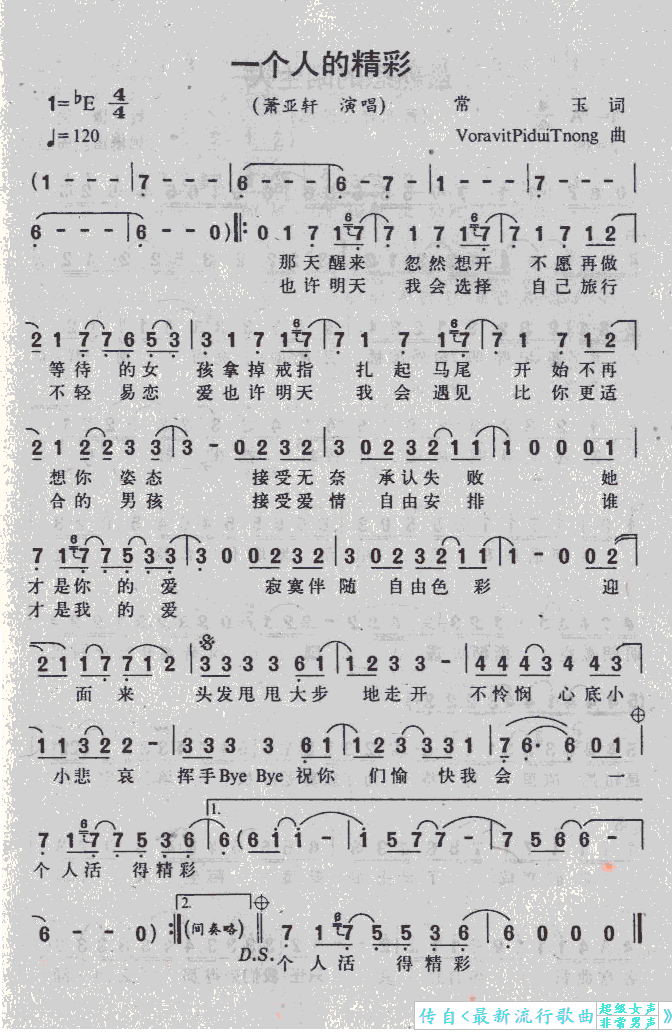 一个人的精彩
1=♭E 4/4 (萧亚轩 演唱) 常 玉 词
♩=120 VoravitPiduiTnong 曲
(1 - - - | 7 - - - | 6 - - - | 6 - 7 - | 1 - - - | 7 - - -
6 - - - | 6 - - 0) ‖: 0 1 7 1 6 7 | 7 1 7 1 6 7 | 7 1 7 1 2
那天醒来 忽然想开 不愿再做
也许明天 我会选择 自己旅行
2 1 7 7 6 5 3 | 3 1 7 1 6 7 | 7 1 7 1 6 7 | 7 1 7 1 2
等待 的女 孩拿掉戒指 扎起 马尾 开始不再
不轻 易恋 爱也许明天 我会 遇见 比你更适
2 1 2 2 3 3 | 3 - 0 2 3 2 | 3 0 2 3 2 1 1 | 1 0 0 0 1
想你 姿态 接受无奈 承认失败 她
合的 男孩 接受爱情 自由安排 谁
7 1 6 7 7 5 3 3 | 3 0 0 2 3 2 | 3 0 2 3 2 1 1 | 1 - 0 0 2
才是你的爱 寂寞伴随 自由色彩 迎
才是我的爱
2 1 1 7 7 1 2 | 3 3 3 3 6 1 | 1 2 3 3 - | 4 4 4 3 4 4 3
面来 头发甩甩大步 地走开 不怜悯 心底小
1 1 3 2 2 - | 3 3 3 3 3 6 1 | 1 2 3 3 3 1 | 7 6· 6 0 1
小悲哀 挥手Bye Bye祝你 们愉快我会 一
1.
7 1 6 7 7 5 3 6 | 6 (6 i i - | i 5 7 7 - | 7 5 6 6 -
个人活 得精彩
2.
6 - - 0) :‖ (间奏略) ‖ 7 1 6 7 5 5 3 6 | 6 0 0 0 ‖
D.S. 个人活 得精彩
传自<最新流行歌曲
超级女声
非常男声